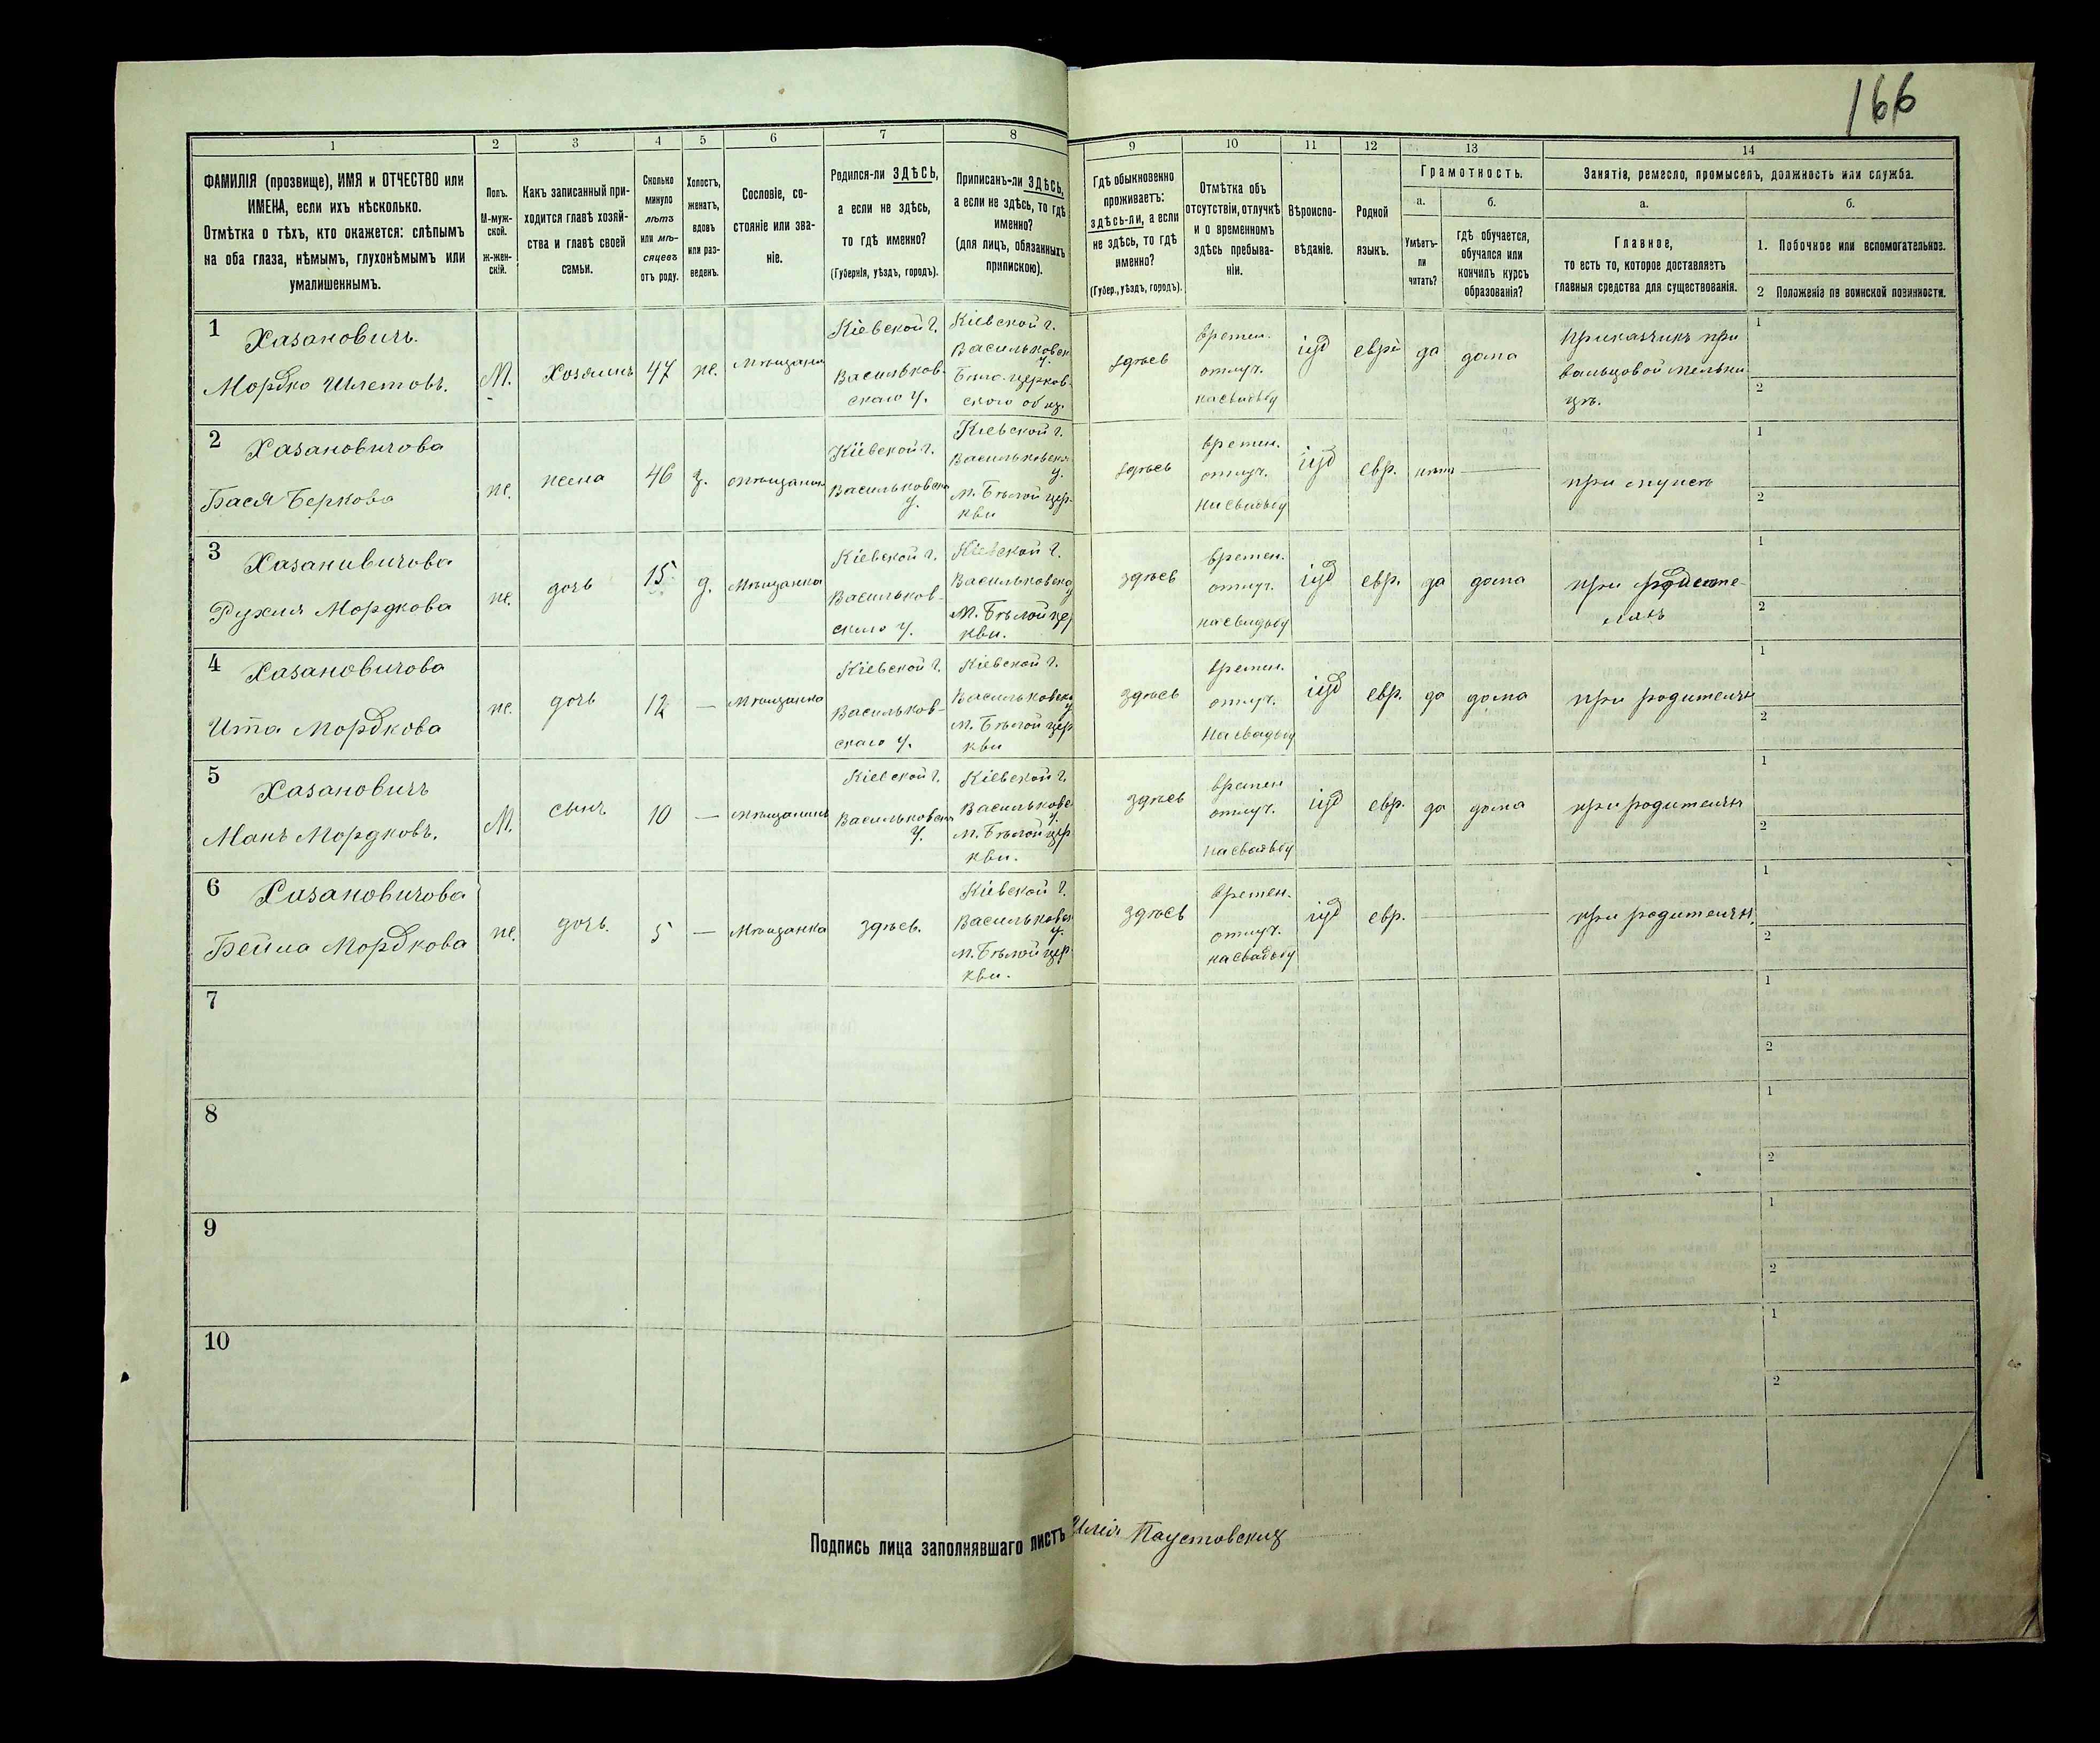 166
1
2
3
4
5
6
7
8
9
10
11
12
13
14
ФАМИЛІЯ (прозвище), ИМЯ и ОТЧЕСТВО или
ИМЕНА, если ихъ нѣсколько.
Отмѣтка о тѣхъ, кто окажется: слѣпымъ
на оба глаза, нѣмымъ, глухонѣмымъ или
умалишеннымъ.
Полъ.
М-муж-
ской.
ж-жен-
скій.
Какъ записанный при-
ходится главѣ хозяй-
ства и главѣ своей
семьи.
Сколько
минуло
лѣтъ
или мѣ-
сяцевъ
отъ роду.
Холостъ,
женатъ,
вдовъ
или раз-
веденъ.
Сословіе, со-
стояніе или зва-
ніе.
Родился-ли ЗДѢСЬ,
а если не здѣсь,
то гдѣ именно?
(Губернія, уѣздъ, городъ).
Приписанъ-ли ЗДѢСЬ,
а если не здѣсь, то гдѣ
именно?
(для лицъ, обязанныхъ
припискою).
Гдѣ обыкновенно
проживаетъ:
здѣсь-ли, а если
не здѣсь, то гдѣ
именно?
(Губер., уѣздъ, городъ).
Отмѣтка объ
отсутствіи, отлучкѣ
и о временномъ
здѣсь пребыва-
ніи.
Вѣроиспо-
вѣданіе.
Родной
языкъ.
Грамотность.
а.
Умѣетъ-
ли
читать?
б.
гдѣ обучается,
обучался или
кончилъ курсъ
образованія?
Занятія, ремесло, промыселъ, должность или служба.
а.
Главное,
то есть то, которое доставляетъ
главныя средства для существованія.
б.
1. Побочное или вспомогательное.
2 Положеніе по воинской повинности.
1
Хазановичъ.
Мордко
М.
Хозяинъ
47
же.
Мѣщани
Кіевской г.
Васильков-
скаго у.
Кіевской г.
Васильковск
у.
Бѣло-церков-
ского об щ.
здѣсь
времен.
отлуч.
на свадьбу
іуд
еврй
да
дома
Приказчикъ при
вальцовой мельни
цѣ.
1
2
2
Хазановичова
Бася Беркова
же.
жена
46
з.
мѣщанка
Кіевской г.
Васильковска
у.
Кіевской г.
Васильковска
у.
м. Бѣлой цер-
кви
здѣсь
времен.
отлуч.
на свадьбу
іуд
евр.
нѣтъ
при мужѣ
1
2
3
Хазановичова
Рухля Мордкова
же.
дочь
15
д.
Мѣщанка
Кіевской г.
Васильков-
скаго у.
Кіевской г.
Васильковско
у
м. Бѣлой цер
кви.
здѣсь
времен.
отлуч.
на свадьбу
іуд
евр.
да
дома
при родите-
ляхъ
1
2
4
Хазановичова
Ита Мордкова
же.
дочь
12
—
Мѣщанка
Кіевской г.
Васильков-
скаго у.
Кіевской г.
Васильковска
у
м. Бѣлой цер
кви
здѣсь
времен.
отлуч.
на свадьбу
іуд
евр.
да
дома
при родителях
1
2
5
Хазановичъ
Манъ Мордковъ.
М.
сынъ
10
—
мѣщанинъ
Кіевской г.
Васильковска
у.
Кіевской г.
Васильковс
у.
м. Бѣлой цер
кви.
здѣсь
времен
отлуч.
на свадьбу
іуд
евр.
да
дома
при родителях
1
2
6
Хазановичова
Бейла Мордкова
же.
дочь.
5
—
Мѣщанка
здѣсь.
Кіевской г.
Васильковск
у.
м. Бѣлой цер
кви.
здѣсь
времен.
отлуч.
на свадьбу
іуд
евр.
при родителях
1
2
7
1
2
8
1
2
9
1
2
10
1
2
Подпись лица заполнявшаго листъ Илія Паустовскій